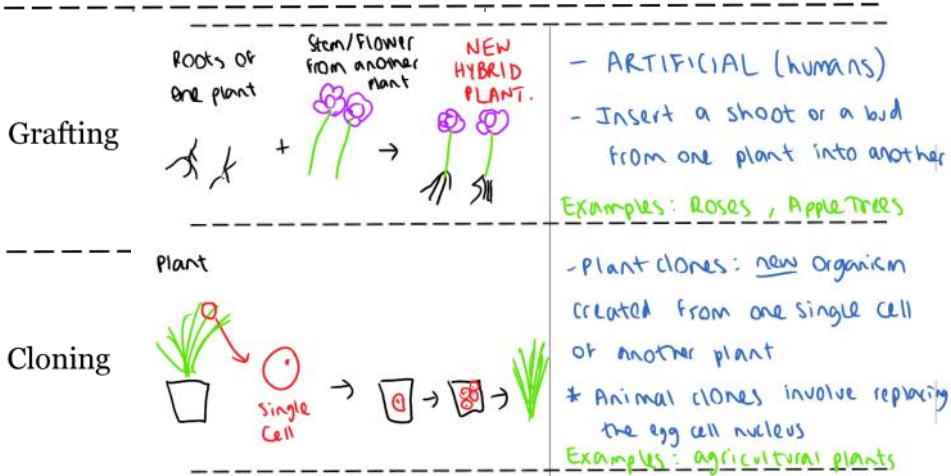 Grafting
Roots of
one plant
+
Stem/Flower
from another
plant
NEW
HYBRID
PLANT.
- ARTIFICIAL (humans)
- Insert a shoot or a bud
from one plant into another
Examples: Roses, Apple Trees
Cloning
Plant
Single
Cell
- Plant clones: new organism
created from one single cell
of another plant
* Animal clones involve replacing
the egg cell nucleus
Examples: agricultural plants